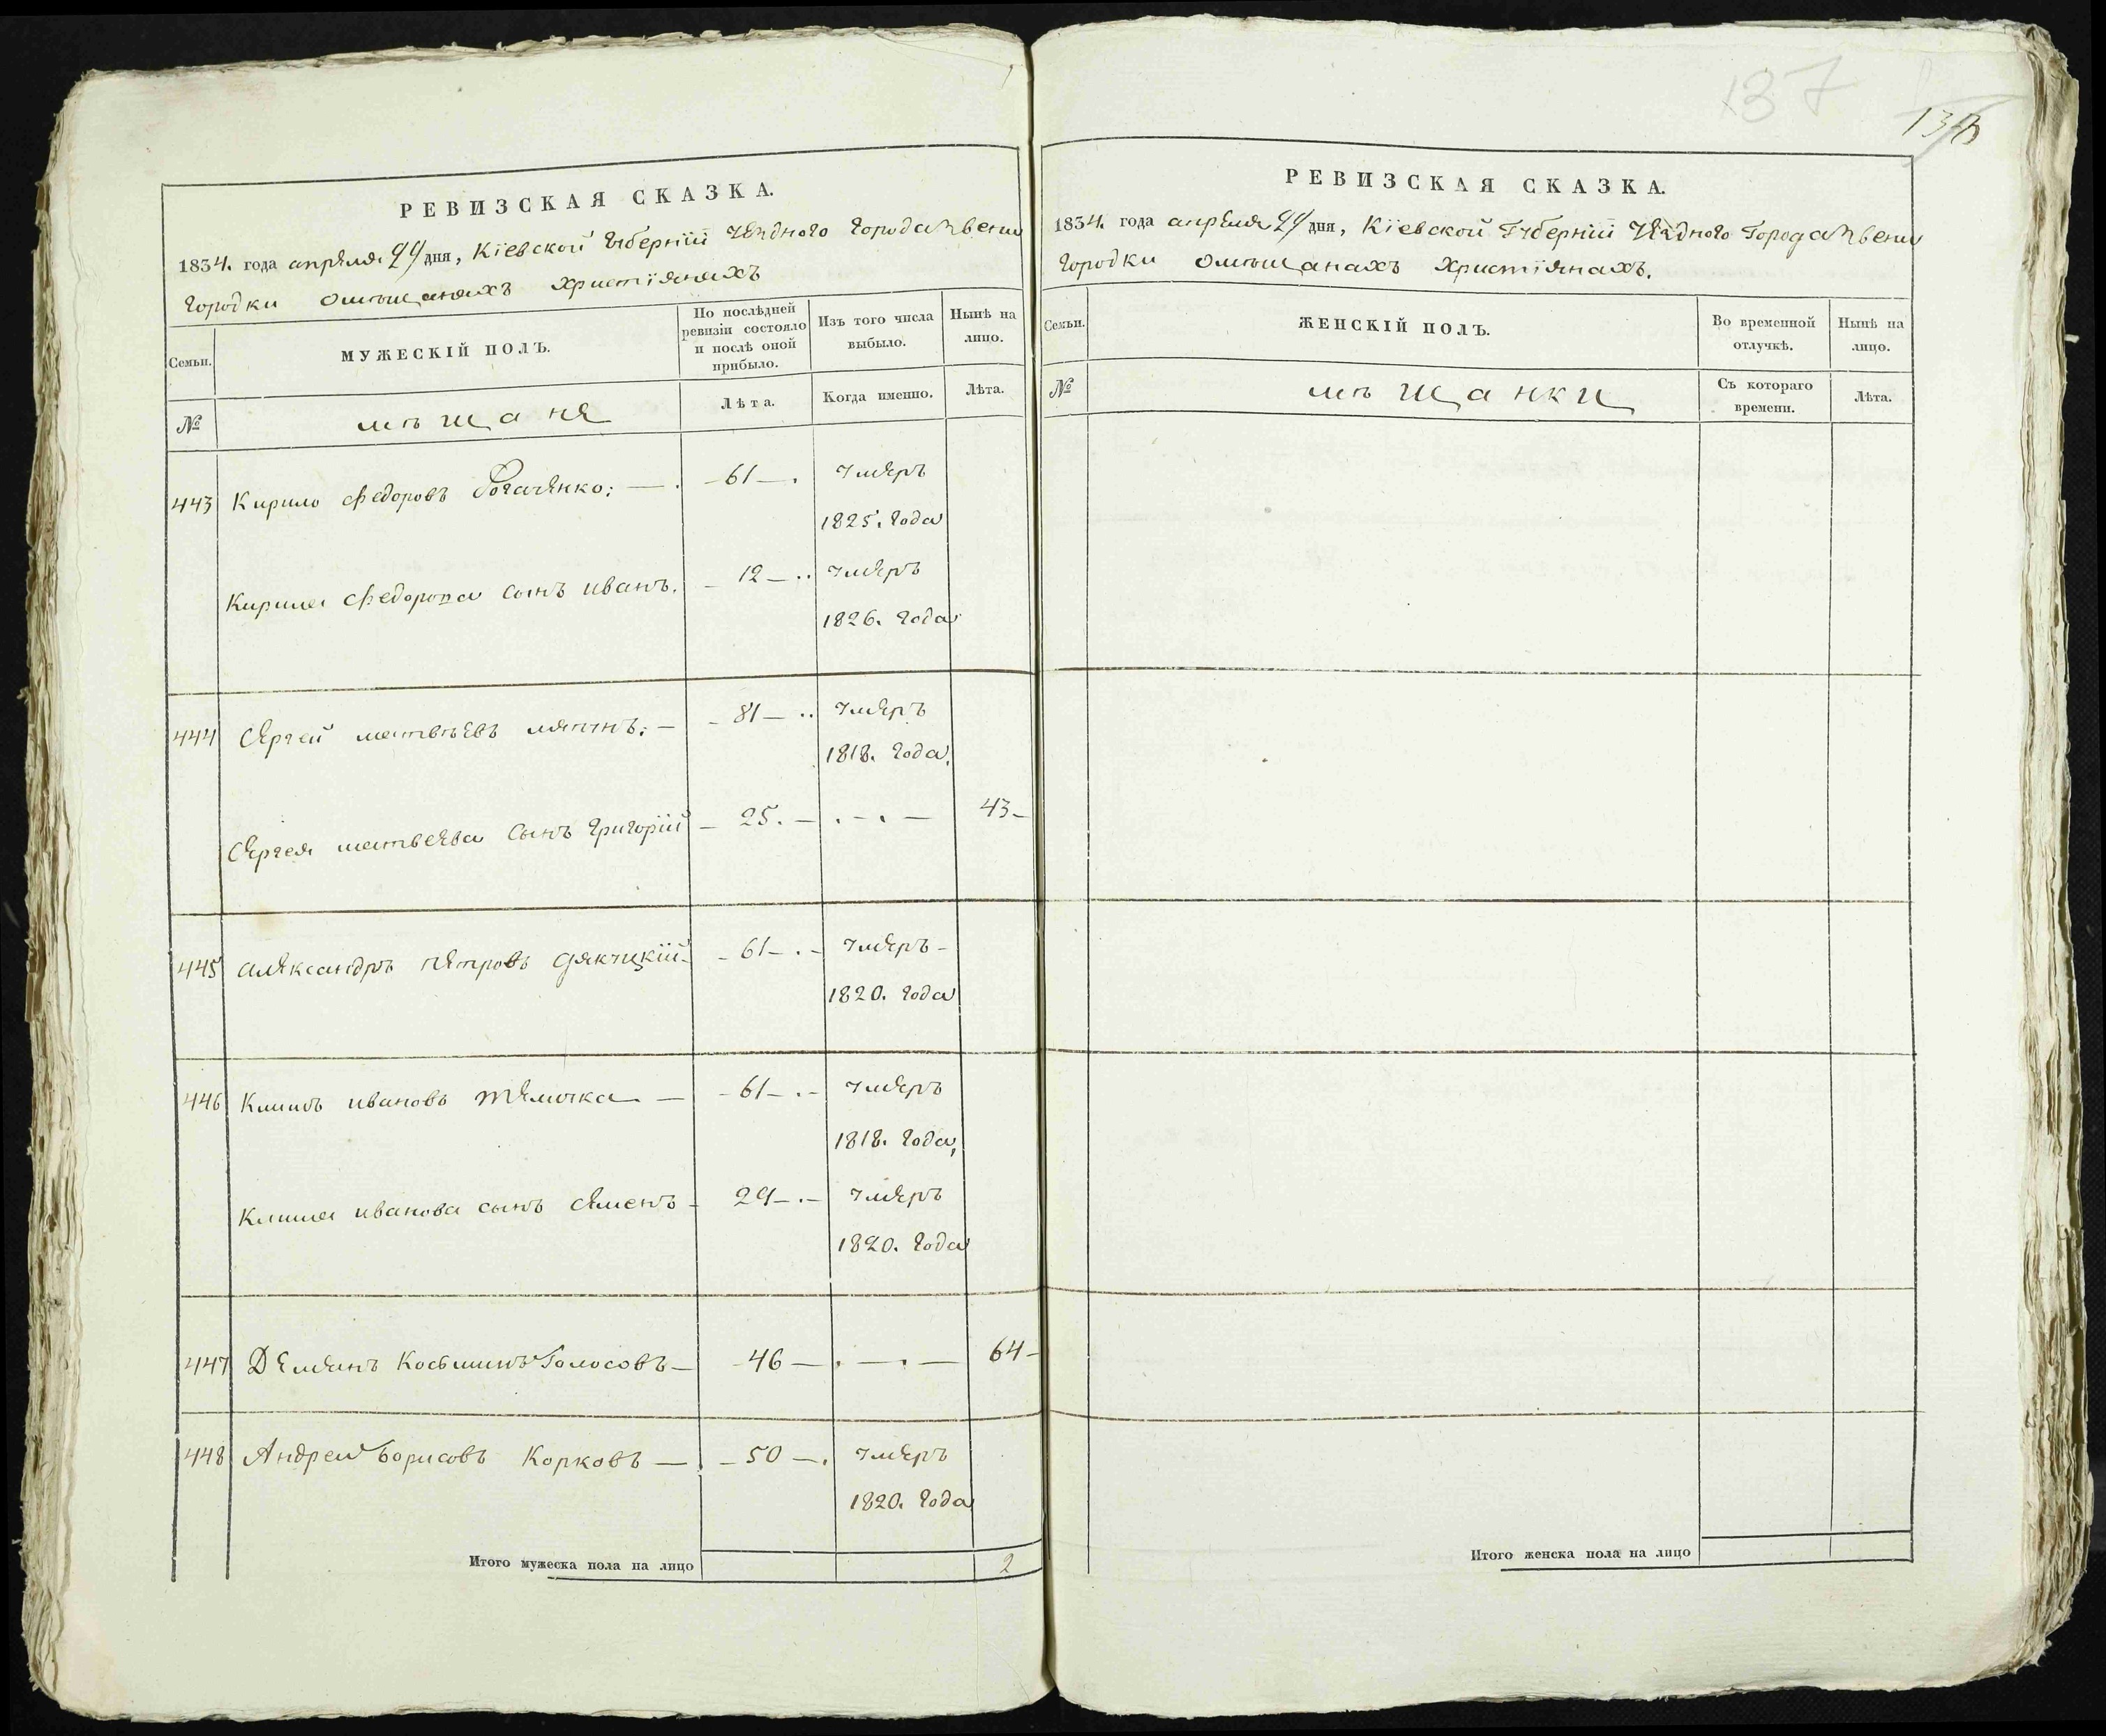 РЕВИЗСКАЯ СКАЗКА.
1834. года апреля 29 дня, Кіевской Губерніи Уезднаго Города Звени
городки омѣщанахъ христіянахъ
Семьи.
МУЖЕСКІЙ ПОЛЪ.
По послѣдней ревизіи состояло и послѣ оной прибыло.
Изъ того числа выбыло.
Нынѣ на лицо.
№
мѣщане
Лѣта.
Когда именно.
Лѣта.
443 Кирило Федоровъ — 61 — умеръ
1825. года
Кирила Федорова сынъ иванъ. — 12 — умеръ
1826. года
444 Сергей матвѣевъ — 81 — умеръ
1818. года.
Сергея матвеева сынъ григорій — 25. — . — . — 43 —
445 александръ петровъ — 61 — . — умеръ —
1820. года
446 Климъ ивановъ темочка — 61 — . — умеръ
1818. года,
Клима иванова сынъ семенъ — 29 — . — умеръ
1820. года
447 Демянъ Косминъ Голосовъ — 46 — . — . — 64 —
448 Андрей Борисовъ Корковъ — 50 — . умеръ
1820. года
Итого мужеска пола на лицо 2
137
РЕВИЗСКАЯ СКАЗКА.
1834. года апреля 29 дня, Кіевской Губерніи Уезднаго Города Звени
городки омѣщанахъ христіянахъ.
Семьи.
ЖЕНСКІЙ ПОЛЪ.
Во временной отлучкѣ.
Нынѣ на лицо.
№
мѣщанки
Съ котораго времени.
Лѣта.
Итого женска пола на лицо